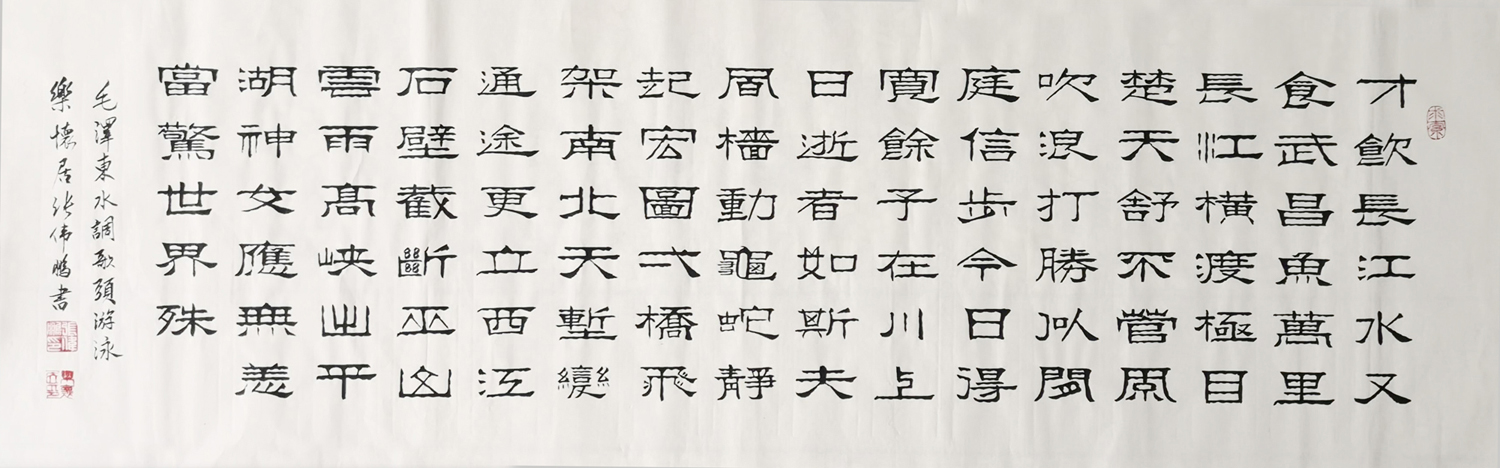 才飲長江水又
食武昌魚萬里
長江横渡極目
楚天舒不管風
吹浪打勝似閒
庭信步今日得
寬餘子在川上
日逝者如斯夫
風檣動龜蛇靜
起宏圖弌橋飛
架南北天塹變
通途更立西江
石壁截斷巫山
雲雨高峽出平
湖神女應無恙
當驚世界殊
毛澤東水調歌頭游泳
樂懷居张伟鵬書